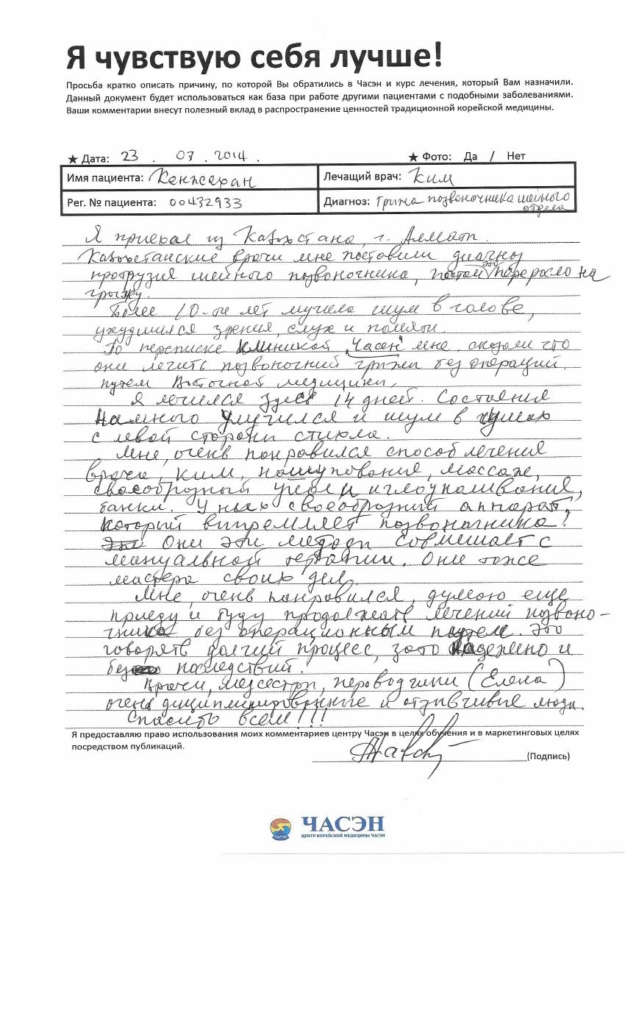 Я чувствую себя лучше!
Просьба кратко описать причину, по которой Вы обратились в Часэн и курс лечения, который Вам назначили.
Данный документ будет использоваться как база при работе другими пациентами с подобными заболеваниями.
Ваши комментарии внесут полезный вклад в распространение ценностей традиционной корейской медицины.
★ Дата: 23 . 07 . 2014 . ★ Фото: Да / Нет
Имя пациента: Кенжехан Лечащий врач: Ким
Рег. № пациента: 00432933 Диагноз: Грижа позвоночника шейного отдела
Я приехал из Казахстана, г. Алматы.
Казахстанские врачи мне поставили диагноз
протрузия шейного позвоночника, потом это переросло на
грыжу.
Более 10-ти лет мучела шум в голове,
ухудшился зрения, слух и память.
По переписке клиникой "Часен" мне сказали что
они лечить позвоночний грижи без операций.
путем Восточной медицики.
Я лечился здес 14 дней. Состояния
намного улучился и шум в ушах
с левой стороны стихла.
Мне, очень понравился способ лечения
врача, Ким, нащупования, массаже,
своеобразный укол и иглоукалования,
банки. У них своеобразний аппарат,
который випремляет позвоночника?
Они эти методи совмешает с
мануальной терапии. Они тоже
мастера своих дел.
Мне, очень понравился, думаю еще
приеду и буду продолжать лечений позвоно-
чника без операционным путем. Это
говорять долгий процесс, зато надежно и
без последствий.
Врачи, медсестри, переводчики (Елена)
очень дициплинированные и отзивчивие люди.
Спасибо всем!!!
Я предоставляю право использования моих комментариев центру Часэн в целях обучения и в маркетинговых целях
посредством публикаций.
(Подпись)
ЧАСЭН
ЦЕНТР КОРЕЙСКОЙ МЕДИЦИНЫ ЧАСЭН